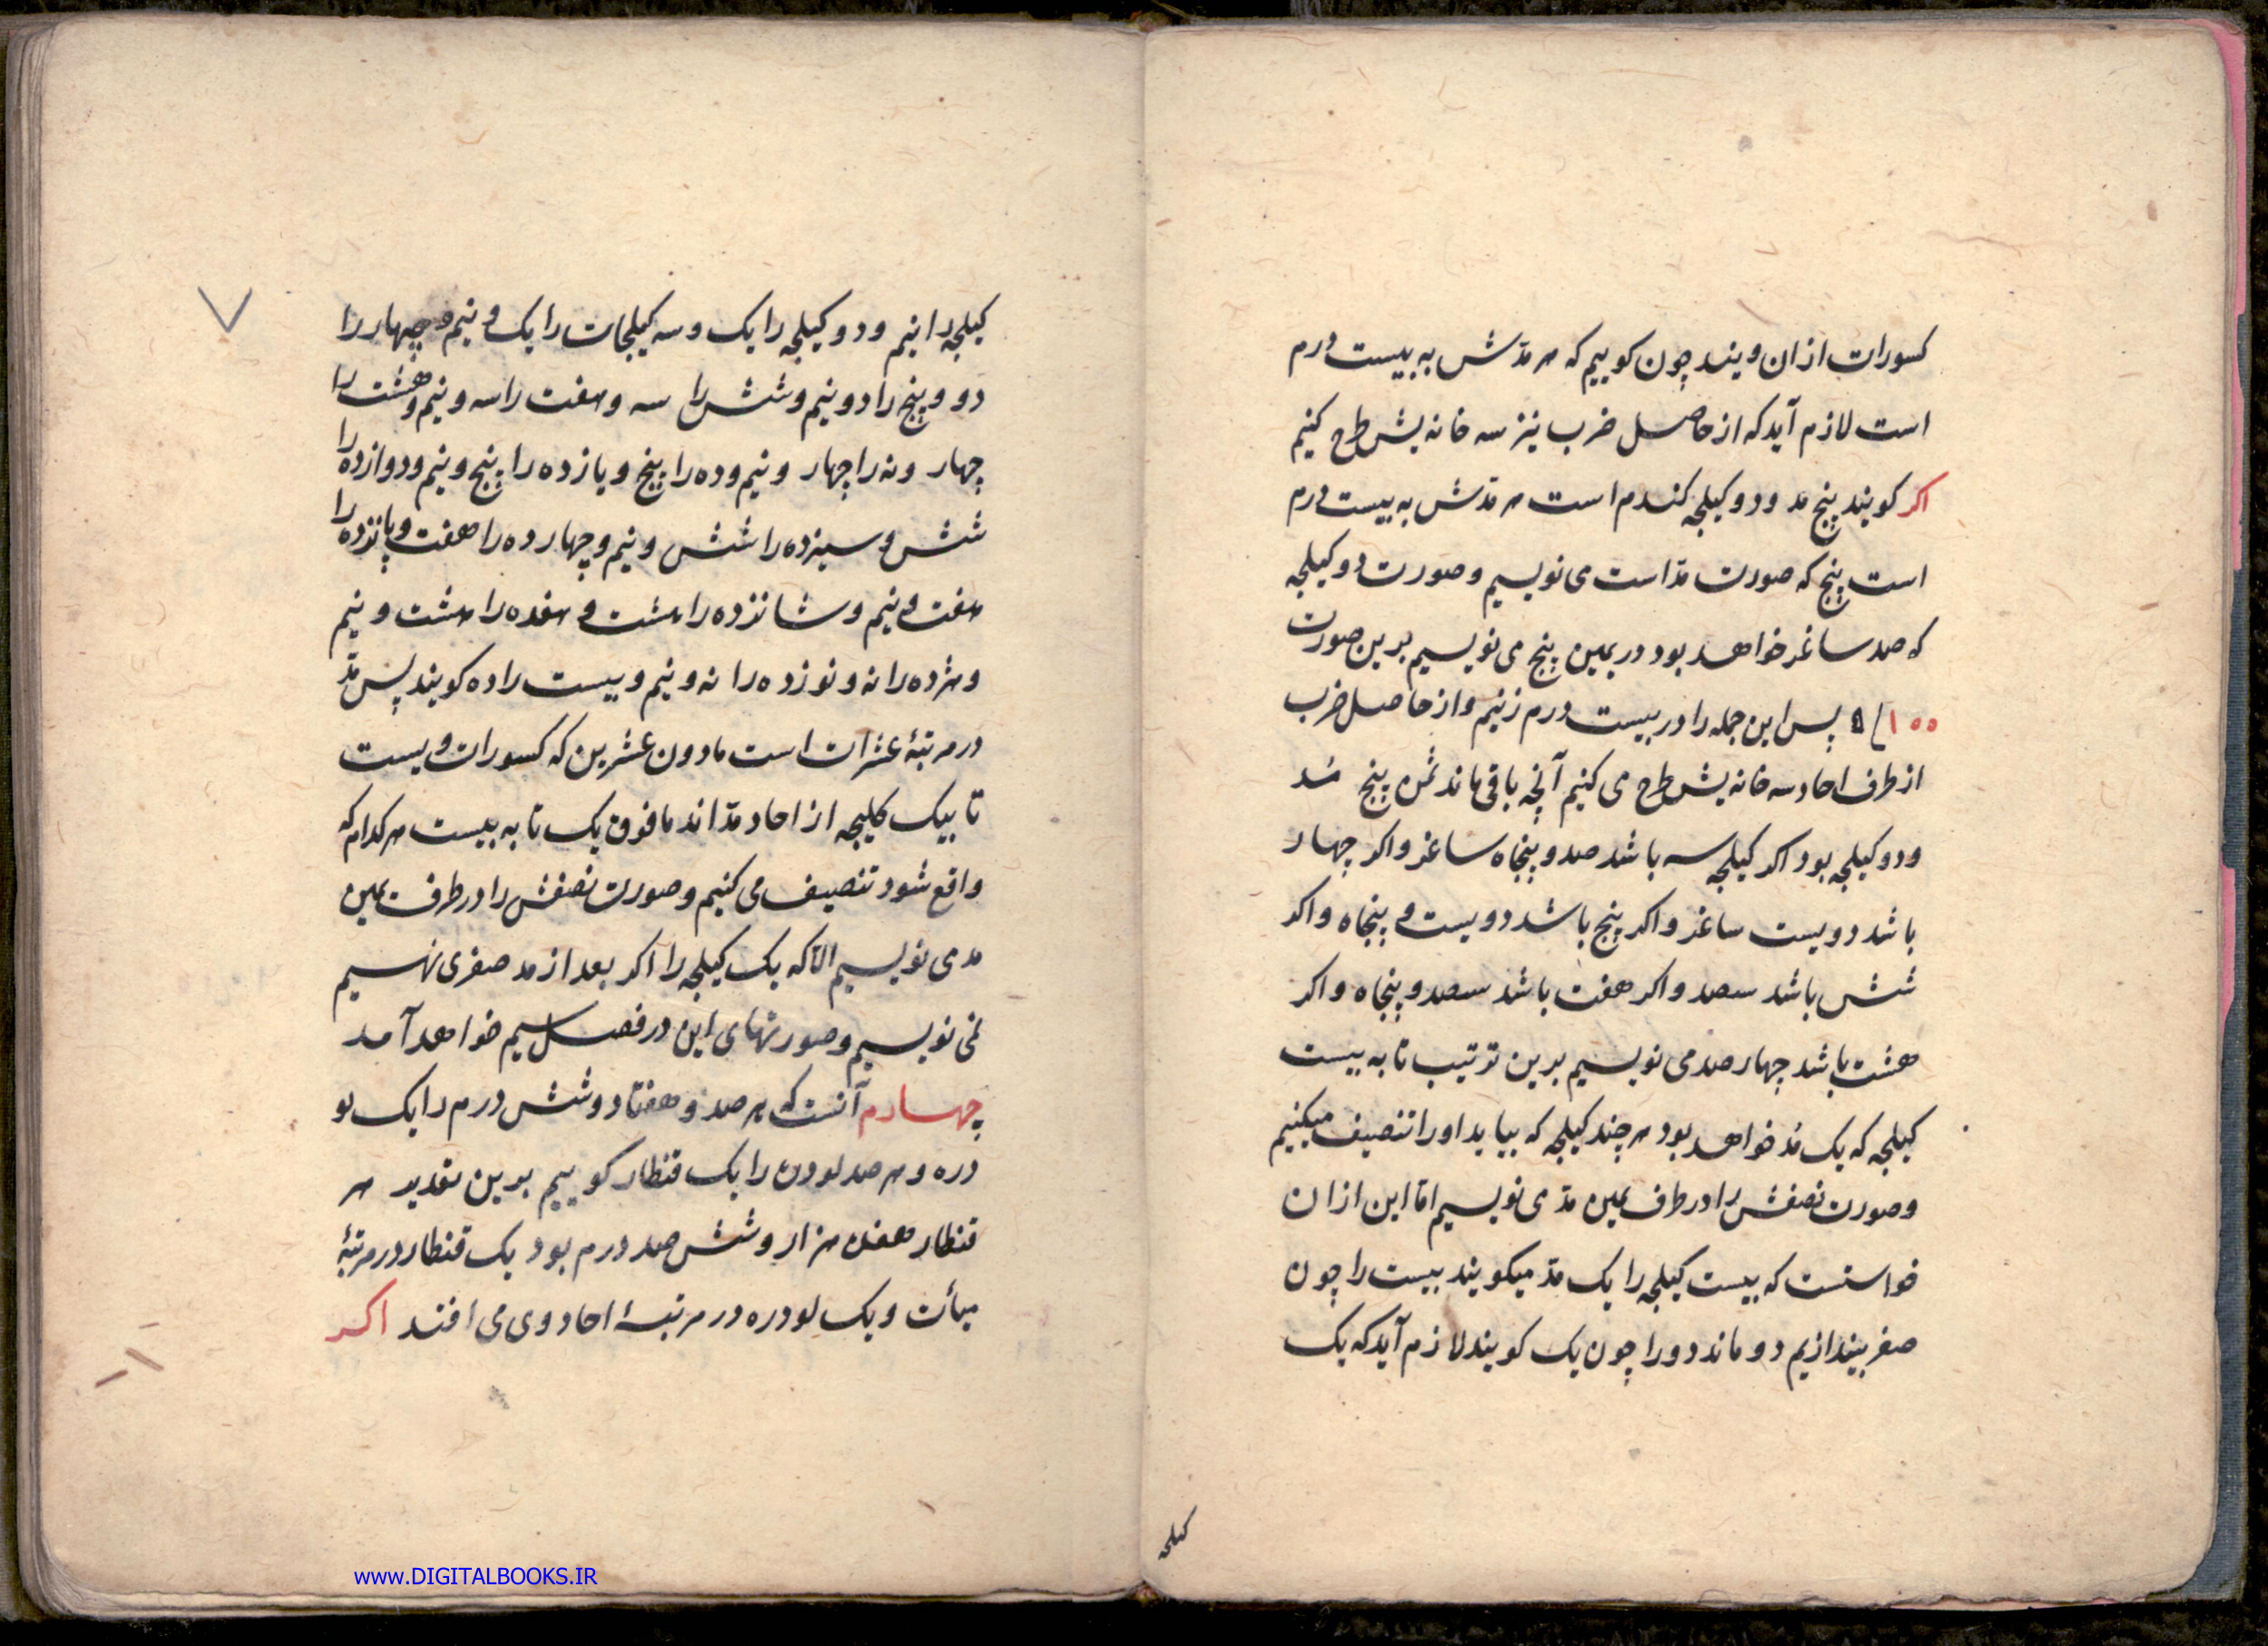 کسورات از ان ویند چون کوییم که هر مدّش به بیست درم
است لازم آید که از حاصل ضرب نیز سه خانه پیش طرح کنیم
اکر کویند پنج مد و دو کیلجه کندم است هر مدّش به بیست درم
است پنج که صورت مدّ است می نویسیم و صورت دو کیلجه
که صد ساغر خواهد بود در یمین پنج می نویسیم برین صورت
۱۰۰ پس این جمله را در بیست درم زنیم و از حاصل ضرب
از طرف احاد سه خانه پیش طرح می کنیم آنچه باقی ماند ثمن پنج مُد
و دو کیلجه بود اکر کیلجه سه باشد صد و پنجاه ساغر و اکر چهار
باشد دویست ساغر و اکر پنج باشد دویست و پنجاه و اکر
شش باشد سصد و اکر هفت باشد سصد و پنجاه و اکر
هشت باشد چهار صد می نویسیم برین ترتیب تا به بیست
کیلجه که یک مُد خواهد بود هر چند کیلجه که بیاید اورا تنصیف میکنیم
و صورت نصفش را در طرف یمین مدّ می نویسیم امّا این از ان
خواستست که بیست کیلجه را یک مدّ میکویند بیست را چون
صفر بیندازیم دو ماند دو را چون یک کویند لازم آید که یک
کیلجه
۷
کیلجه را نیم و دو کیلجه را یک و سه کیلجات را یک و نیم و چهار را
دو و پنج را دو و نیم و شش را سه و هفت را سه و نیم و هشت را
چهار و نه را چهار و نیم و ده را پنج و یازده را پنج و نیم و دوازده را
شش و سیزده را شش و نیم و چهارده را هفت و پانزده را
هفت و نیم و شانزده را هشت و هفده را هشت و نیم
و هژده را نه و نوزده را نه و نیم و بیست را ده کویند پس مدّ
در مرتبهٔ عشرات است مادون عشرین که کسورات ویست
تا بیک کلیجه از احاد مدّ اند مافوق یک تا به بیست هر کدام که
واقع شود تنصیف می کنیم و صورت نصفش را در طرف یمین
مد می نویسیم الّا که یک کیلجه را اکر بعد از مد صفری ننهیم
نمی نویسیم و صورتهای این در فصل سیم خواهد آمد
چهارم آنست که هر صد و هفتاد و شش درم را یک لو
دره و هر صد لودره را یک قنطار کوییم برین تقدیر هر
قنطار هفده هزار و شش صد درم بود یک قنطار در مرتبهٔ
میأت و یک لودره در مرتبهٔ احاد وی می افتد اکر
www.DIGITALBOOKS.IR